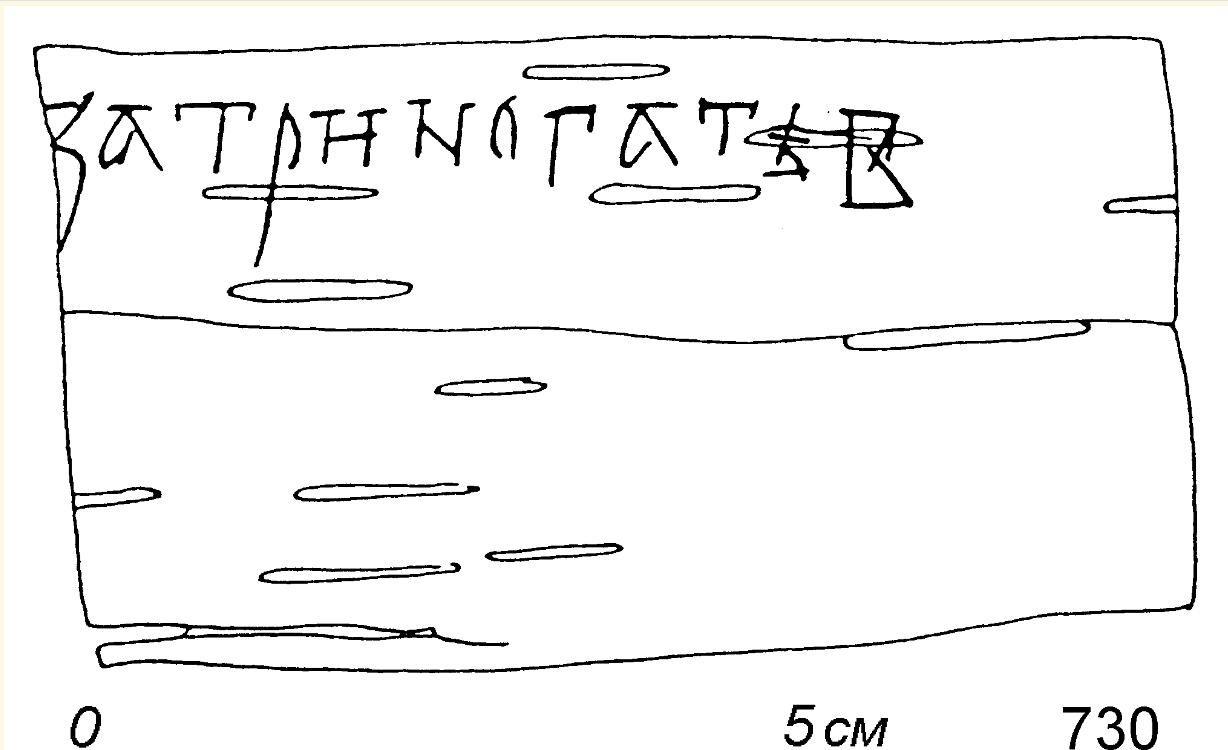 ЗАТРИНОГАТѢВ
0 5 см 730